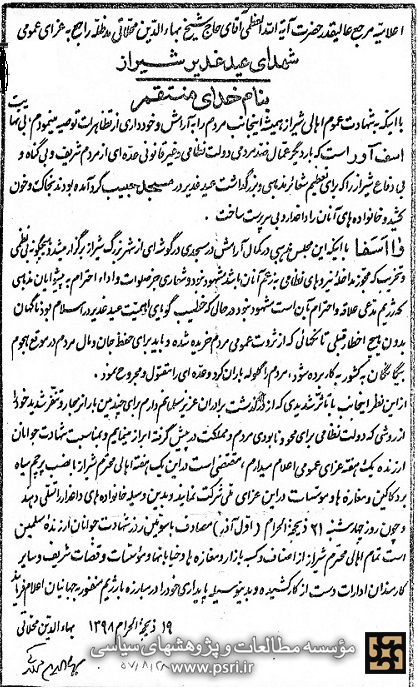 اعلامیه مرجع عالیقدر حضرت آیة الله العظمی آقای حاج شیخ بهاءالدین محلاتی مدظله راجع به عزای عمومی
شهدای عید غدیر شیراز
بنام خدای منتقم
با اینکه به شهادت عموم اهالی شیراز همیشه اینجانب مردم را به آرامش و خودداری از تظاهرات توصیه مینمودم
اسف‌آور است که بار دیگر عمال ضد مردمی دولت نظامی و غیر قانونی عده‌ای از مردم شریف و بی‌گناه و
بی دفاع شیراز را که برای تعظیم شعائر مذهبی و بزرگداشت عید غدیر در مسجد حبیب گرد آمده بودند بخاک و خون
کشید و خانواده‌های آنان را داغدار و بی سرپرست ساخت.
وااسفا با اینکه این مجلس مذهبی در کمال آرامش در مسجدی در گوشه‌ای از شهر بزرگ شیراز برگزار میشد و هیچگونه بی‌نظمی
و تخریب که مجوز مداخله نیروهای نظامی به زعم آنان باشد مشهود نبود و شعاری جز صلوات و اداء احترام به پیشوایان مذهبی
که رژیم مدعی علاقه و احترام به آن است مشهود نبود در حالی که خطیب گویای اهمیت عید غدیر در اسلام بود ناگهان
بدون هیچ اخطار قبلی با تفنگهائی که از ثروت عمومی مردم خریده شده و باید برای حفظ جان و مال مردم در موقع هجوم
بیگانگان به کشور به کار برده شود، مردم را گلوله باران کرد و عده‌ای را مقتول و مجروح نمود.
از این نظر اینجانب با تأثر شدیدی که از درگذشت برادران عزیز مسلمانم دارم برای چندمین بار انزجار و تنفر شدید خود را
از روشی که دولت نظامی برای محو و نابودی مردم و مملکت در پیش گرفته ابراز مینمایم و بمناسبت شهادت جوانان
ارزنده یک هفته عزای عمومی اعلام میدارم، مقتضی است در این یک هفته اهالی محترم شیراز با نصب پرچم سیاه
بر دکاکین و مغازه‌ها و مؤسسات در این عزای ملی شرکت نمایند و بدین وسیله خانواده‌های داغدار را تسلی دهند
و چون روز چهارشنبه ۲۱ ذیحجة الحرام (اول آذر) مصادف با سومین روز شهادت جوانان ارزنده مسلمین
است تمام اهالی محترم شیراز از اصناف و کسبه بازار و مغازه‌ها و خیابانها و مؤسسات و قضات شریف و سایر
کارمندان ادارات دست از کار کشیده و بدینوسیله پایداری خود را در مبارزه با رژیم منفور به جهانیان اعلام فرمایند
۱۹ ذیحجة الحرام ۱۳۹۸ بهاءالدین محلاتی
۵۷/۸/۲۸
مؤسسه مطالعات و پژوهشهای سیاسی
www.psri.ir